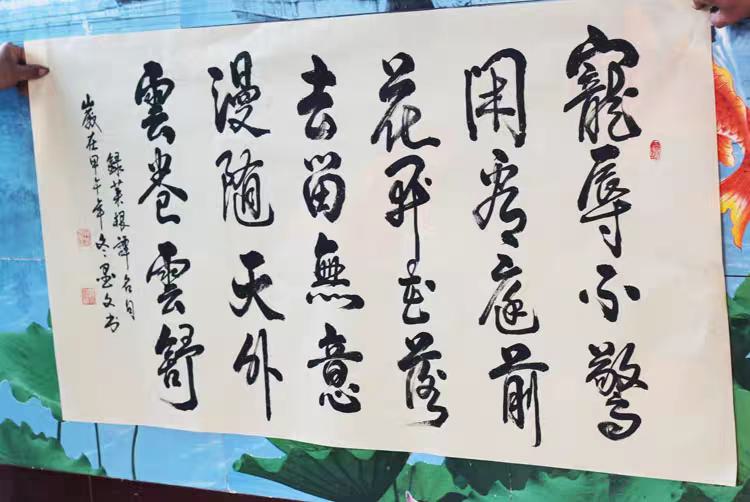 寵辱不驚
閑看庭前
花開花落
去留無意
漫随天外
雲卷雲舒
録菜根譚名句
歲在甲午年冬墨文书